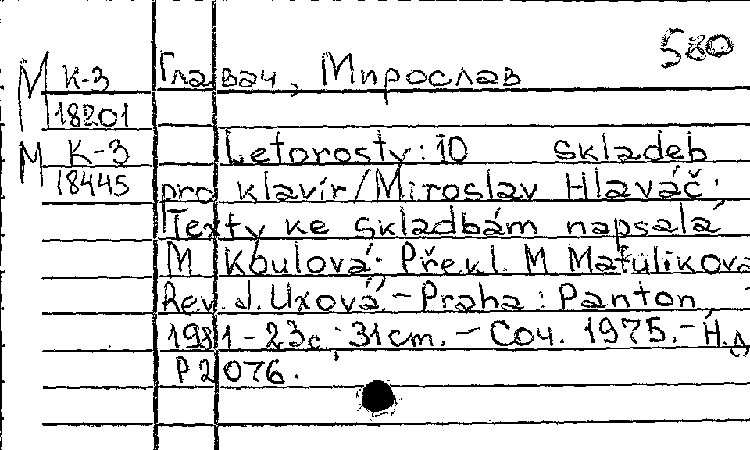 580
М К-3 Главач, Мирослав
18201
М К-3 Letorosty: 10 skladeb
18445 pro klavír/Miroslav Hlaváč.
Texty ke skladbám napsala
M Koulová. Překl. M Matulíková
Rev. J. Uxová. – Praha : Panton
1981 – 23с ; 31cm. – Соч. 1975. – Н. Д
P 2076.